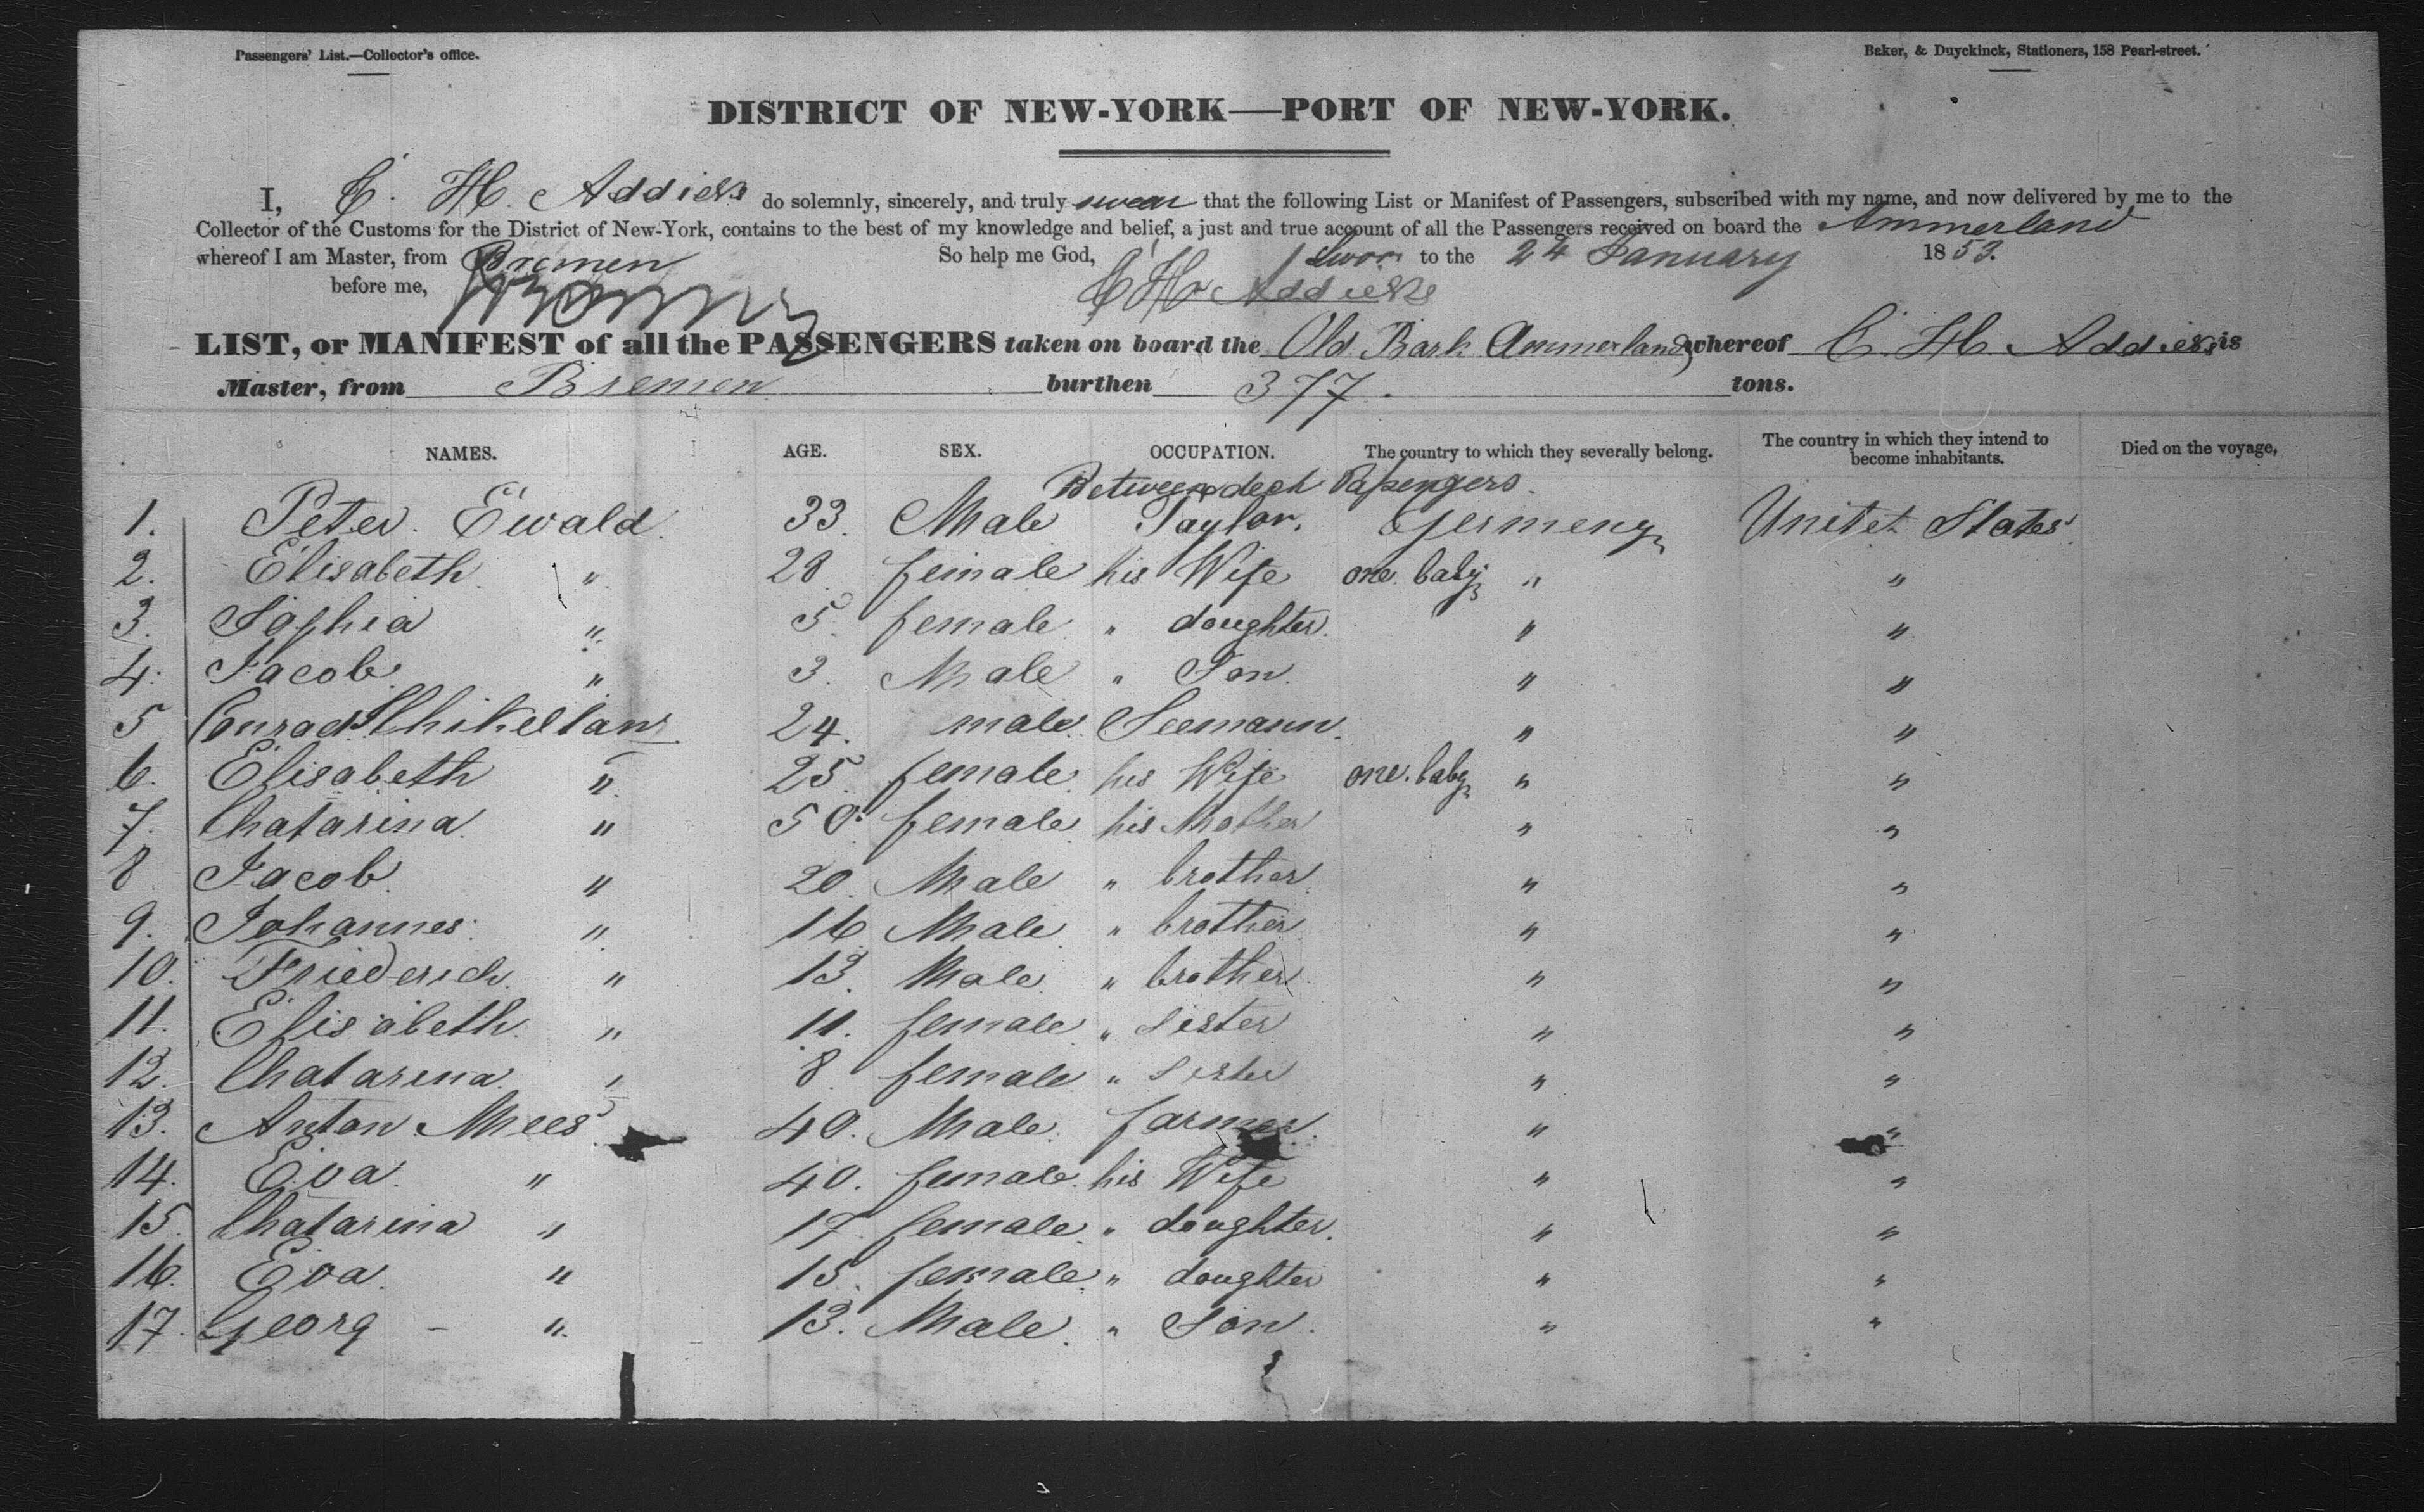 Passengers' List.—Collector's office.
Baker, & Duyckinck, Stationers, 158 Pearl-street.
DISTRICT OF NEW-YORK—PORT OF NEW-YORK.
I, C. H. Addicks do solemnly, sincerely, and truly swear that the following List or Manifest of Passengers, subscribed with my name, and now delivered by me to the
Collector of the Customs for the District of New-York, contains to the best of my knowledge and belief, a just and true account of all the Passengers received on board the Ammerland
whereof I am Master, from Bremen So help me God, Sworn to the 24 January 1853.
before me, C H Addicks
LIST, or MANIFEST of all the PASSENGERS taken on board the Old Bark Ammerland, whereof C. H. Addicks is
Master, from Bremen burthen 377. tons.
NAMES. AGE. SEX. OCCUPATION. The country to which they severally belong. The country in which they intend to become inhabitants. Died on the voyage,
Between deck Passengers.
1. Peter Ewald. 33. Male Taylor. Germeny Unitet States
2. Elisabeth " 28 female his Wife one baby " "
3. Sophia " 5. female " doughter. " "
4. Jacob " 3. Male " Son. " "
5 Conrad 24. male. Seemann. " "
6. Elisabeth " 25. female. his Wife one. baby " "
7. Chatarina " 50. female his Mother " "
8 Jacob " 20. Male " brother " "
9. Johannes " 16 Male " brother " "
10. Friederich " 13. Male " brother " "
11. Elisabeth " 11. female " Sister " "
12. Chatarina " 8. female " Sister " "
13. Anton Mees 40. Male. farmer. " "
14. Eva. " 40. female. his Wife " "
15. Chatarina " 17. female. " doughter. " "
16. Eva. " 15. female. " doughter " "
17. Georg – " 13. Male. " Son. " "